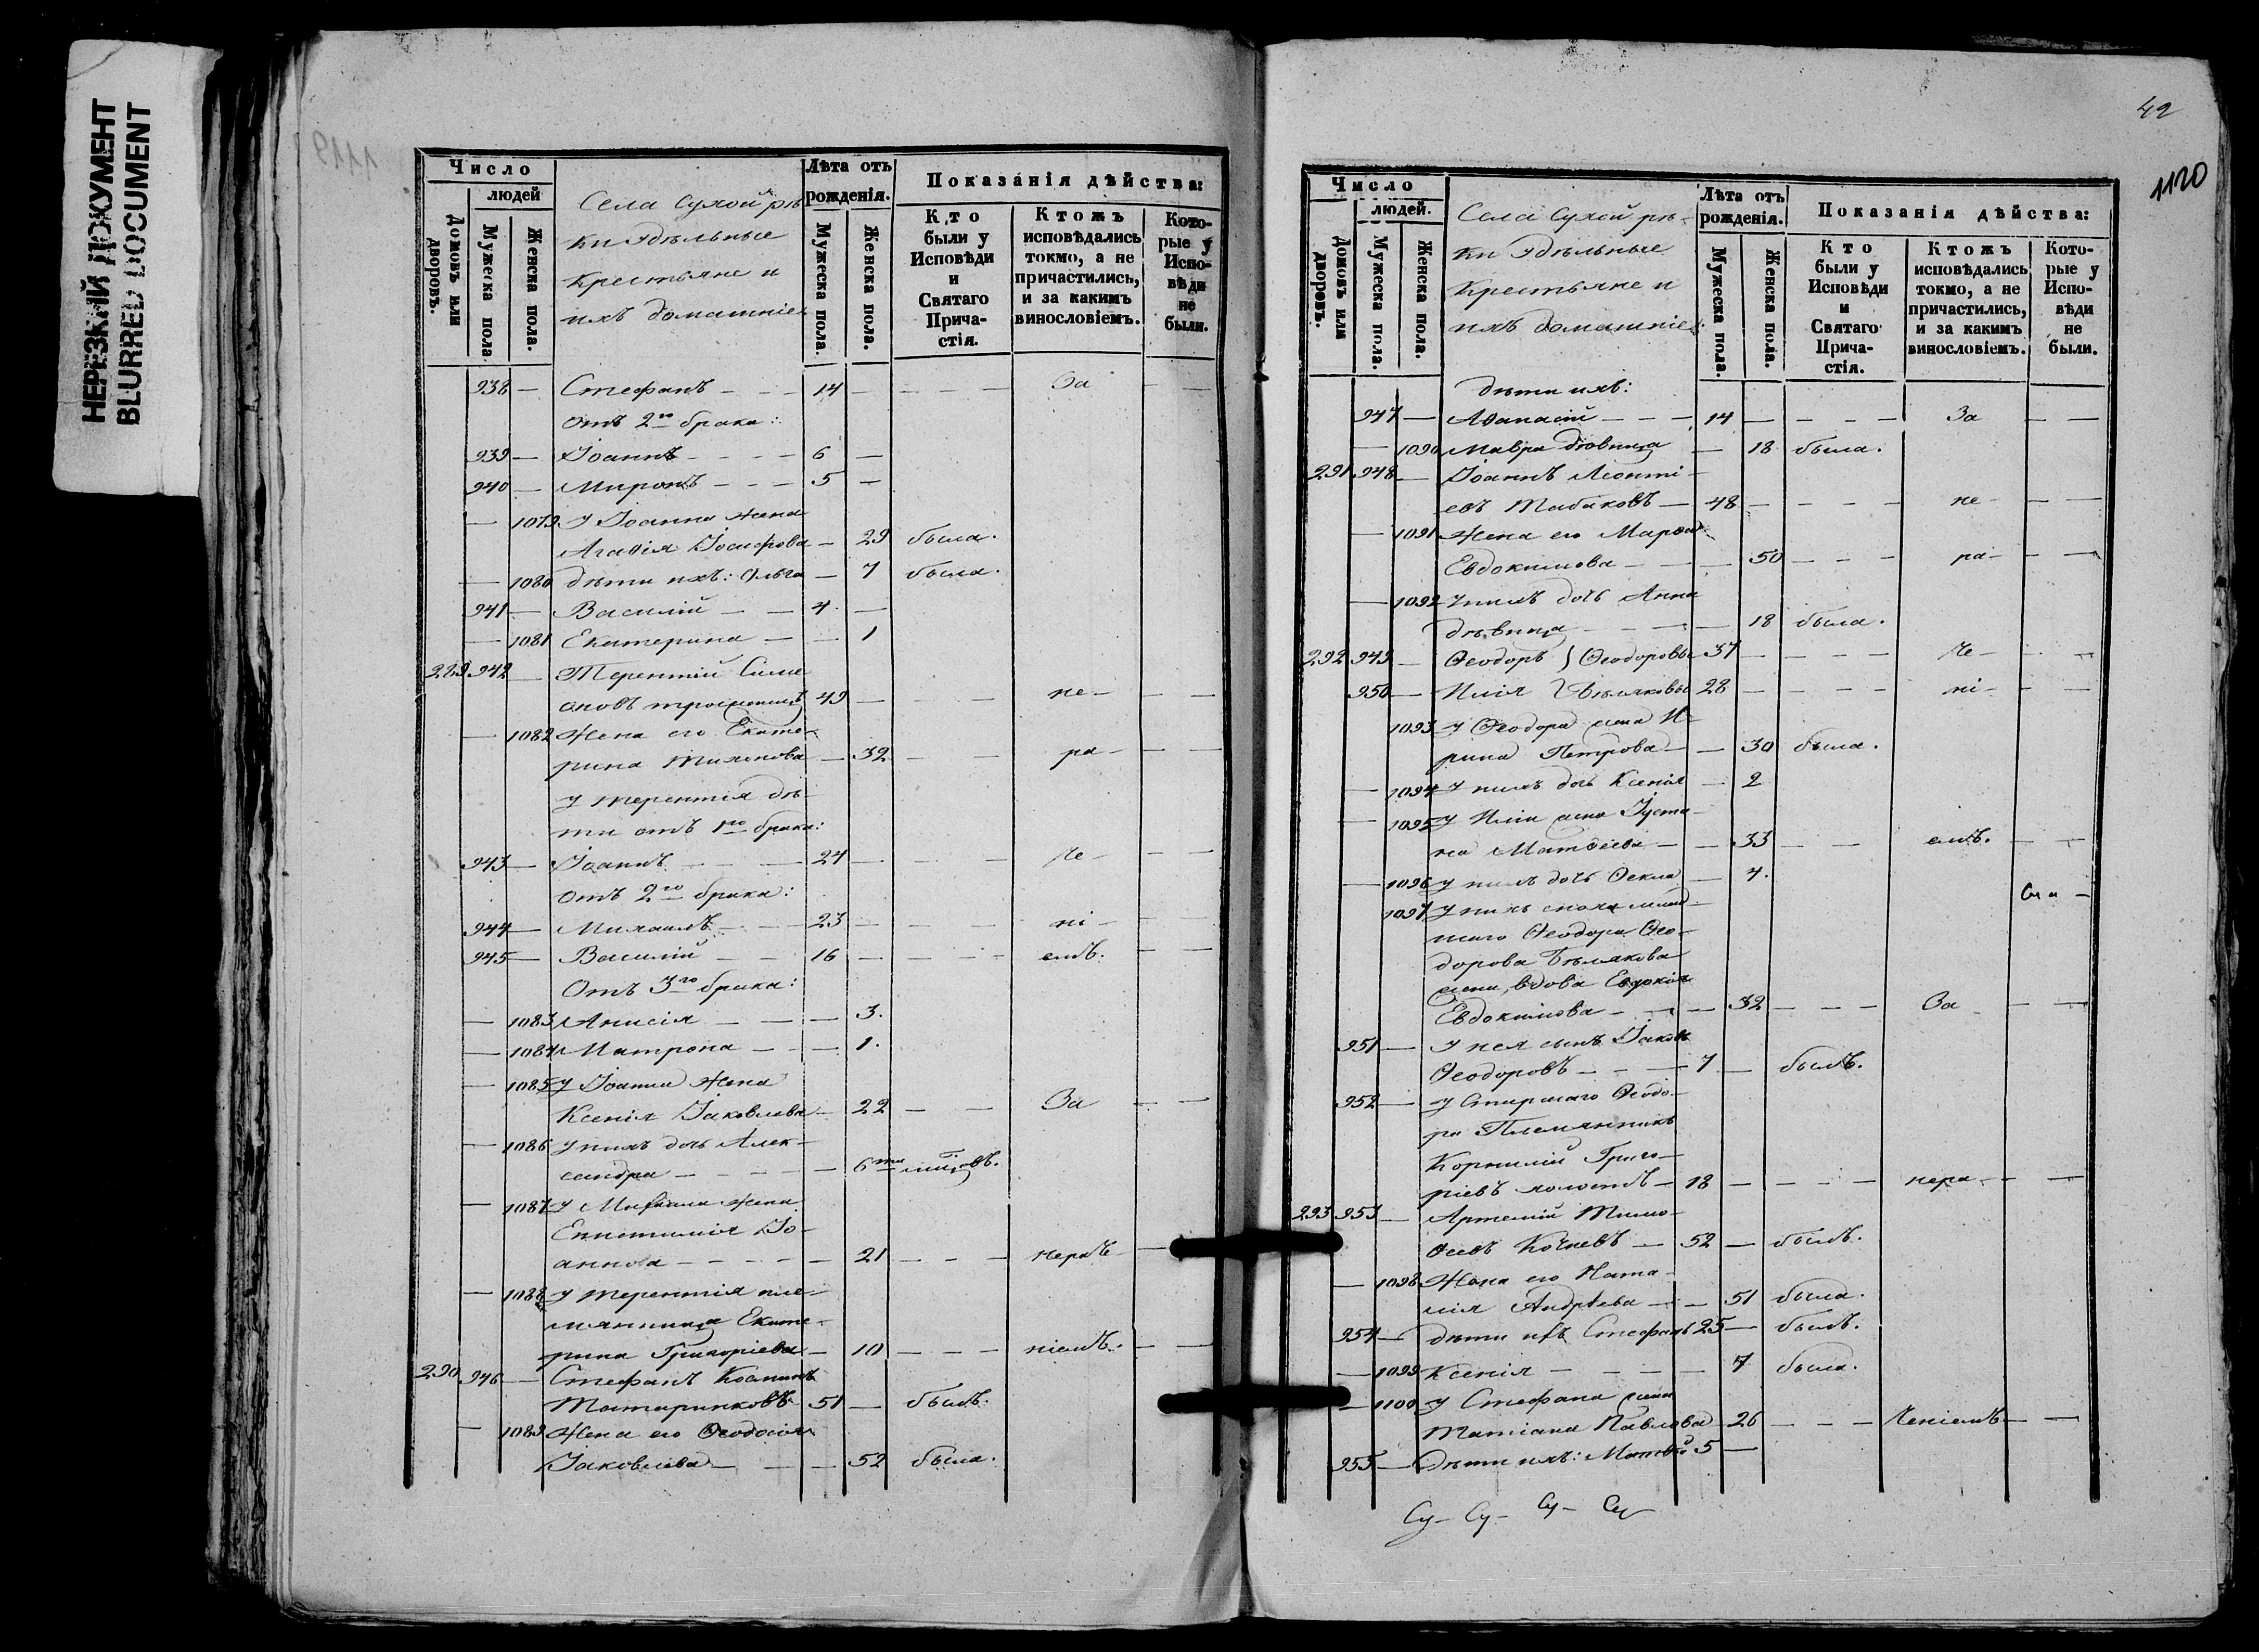 НЕРЕЗКИЙ ДОКУМЕНТ
BLURRED DOCUMENT
1119
Число
людей
Домовъ или дворовъ.
Мужеска пола.
Женска пола.
Села Сухой рѣ
ки удѣльные
крестьяне и
ихъ домашніе
Лѣта отъ рожденія.
Мужеска пола.
Женска пола.
Показанія дѣйства:
Кто были у Исповѣди и Святаго Причастія.
Ктожъ исповѣдались токмо, а не причастились, и за какимъ винословіемъ.
Которые у Исповѣди не были.
938 — Стефанъ — 14 — — — За — —
отъ 2го брака:
939 — Іоаннъ — 6 —
940 — Миронъ — 5 —
— 1079 У Іоанна жена
Агафія Іосифова — 29 была.
— 1080 дѣти ихъ: Ольга — 7 была.
941 — Василій — 4 —
— 1081 Екатерина — 1
289 942 — Терентій Симе
оновъ 49 — — не — —
— 1082 Жена его Екате-
рина Тихонова — 32 — — ра — —
у Терентія дѣ-
ти отъ 1го брака:
943 — Іоаннъ — 24 — — че — —
отъ 2го брака:
944 — Михаилъ — 23 — — ні — —
945 — Василій — 16 — — емъ. — —
Отъ 3го брака:
— 1083 Анисія — 3.
— 1084 Матрона — 1.
— 1085 У Іоанна жена
Ксенія Іаковлева — 22 — — За — —
— 1086 У нихъ дочь Алек-
сандра — 6ти
— 1087 У Михаила жена
Епистимія Іо-
аннова — 21 — — нераче —
— 1088 У Терентія пле-
мянница Екате-
рина Григоріева — 10 — — ніемъ. — —
290 946 — Стефанъ Косминъ
Татаринковъ 51 — былъ.
— 1089 Жена его Феодосія
Іаковлева — 52 была.
42
1120
Число
людей.
Домовъ или дворовъ.
Мужеска пола.
Женска пола.
Села Сухой рѣ-
ки удѣльные
крестьяне и
ихъ домашніе
Лѣта отъ рожденія.
Мужеска пола.
Женска пола.
Показанія дѣйства:
Кто были у Исповѣди и Святаго Причастія.
Ктожъ исповѣдались токмо, а не причастились, и за какимъ винословіемъ.
Которые у Исповѣди не были.
дѣти ихъ:
947 — Аѳанасій — 14 — — — За — —
— 1090 Мавра дѣвица — 18 была.
291 948 — Іоаннъ Леонті-
евъ Табаковъ — 48 — — — не — —
— 1091 Жена его Марѳа
Евдокимова — 50 — — ра — —
— 1092 У нихъ дочь Анна
дѣвица — 18 была.
292 949 — Ѳеодоръ } Ѳеодоровы 37 — — — че — —
950 — Илія } Бѣляковы 28 — — — ні — —
1093 У Ѳеодора жена И-
рина Петрова — 30 была.
— 1094 У нихъ дочь Ксенія — 2
— 1095 У Иліи жена Іуста-
на Матѳеева — 33 — — емъ. — —
— 1096 У нихъ дочь Ѳекла — 4.
1097 У нихъ сноха млад-
шаго Ѳеодора Ѳео-
дорова Бѣлякова
жена, вдова Евдокія
Евдокимова — 32 — — За — —
951 — У нея сынъ Іаковъ
Ѳеодоровъ — 7 — былъ.
952 — У Старшаго Ѳеодо-
ра Племянникъ
Корнилій Григо-
ріевъ холостъ — 18 — — — нера — —
293 953 — Артемій Тимо-
ѳеевъ Кочневъ — 52 — былъ.
— 1098 Жена его Ната-
лія Андреева — 51 была.
954 — дѣти ихъ Стефанъ 25 — былъ.
— 1099 Ксенія — 7 была.
— 1100 У Стефана жена
Татіана Павлова 26 — — — ченіемъ — —
955 — Дѣти ихъ: Матвѣй 5 —
Су- Су- Су- Су